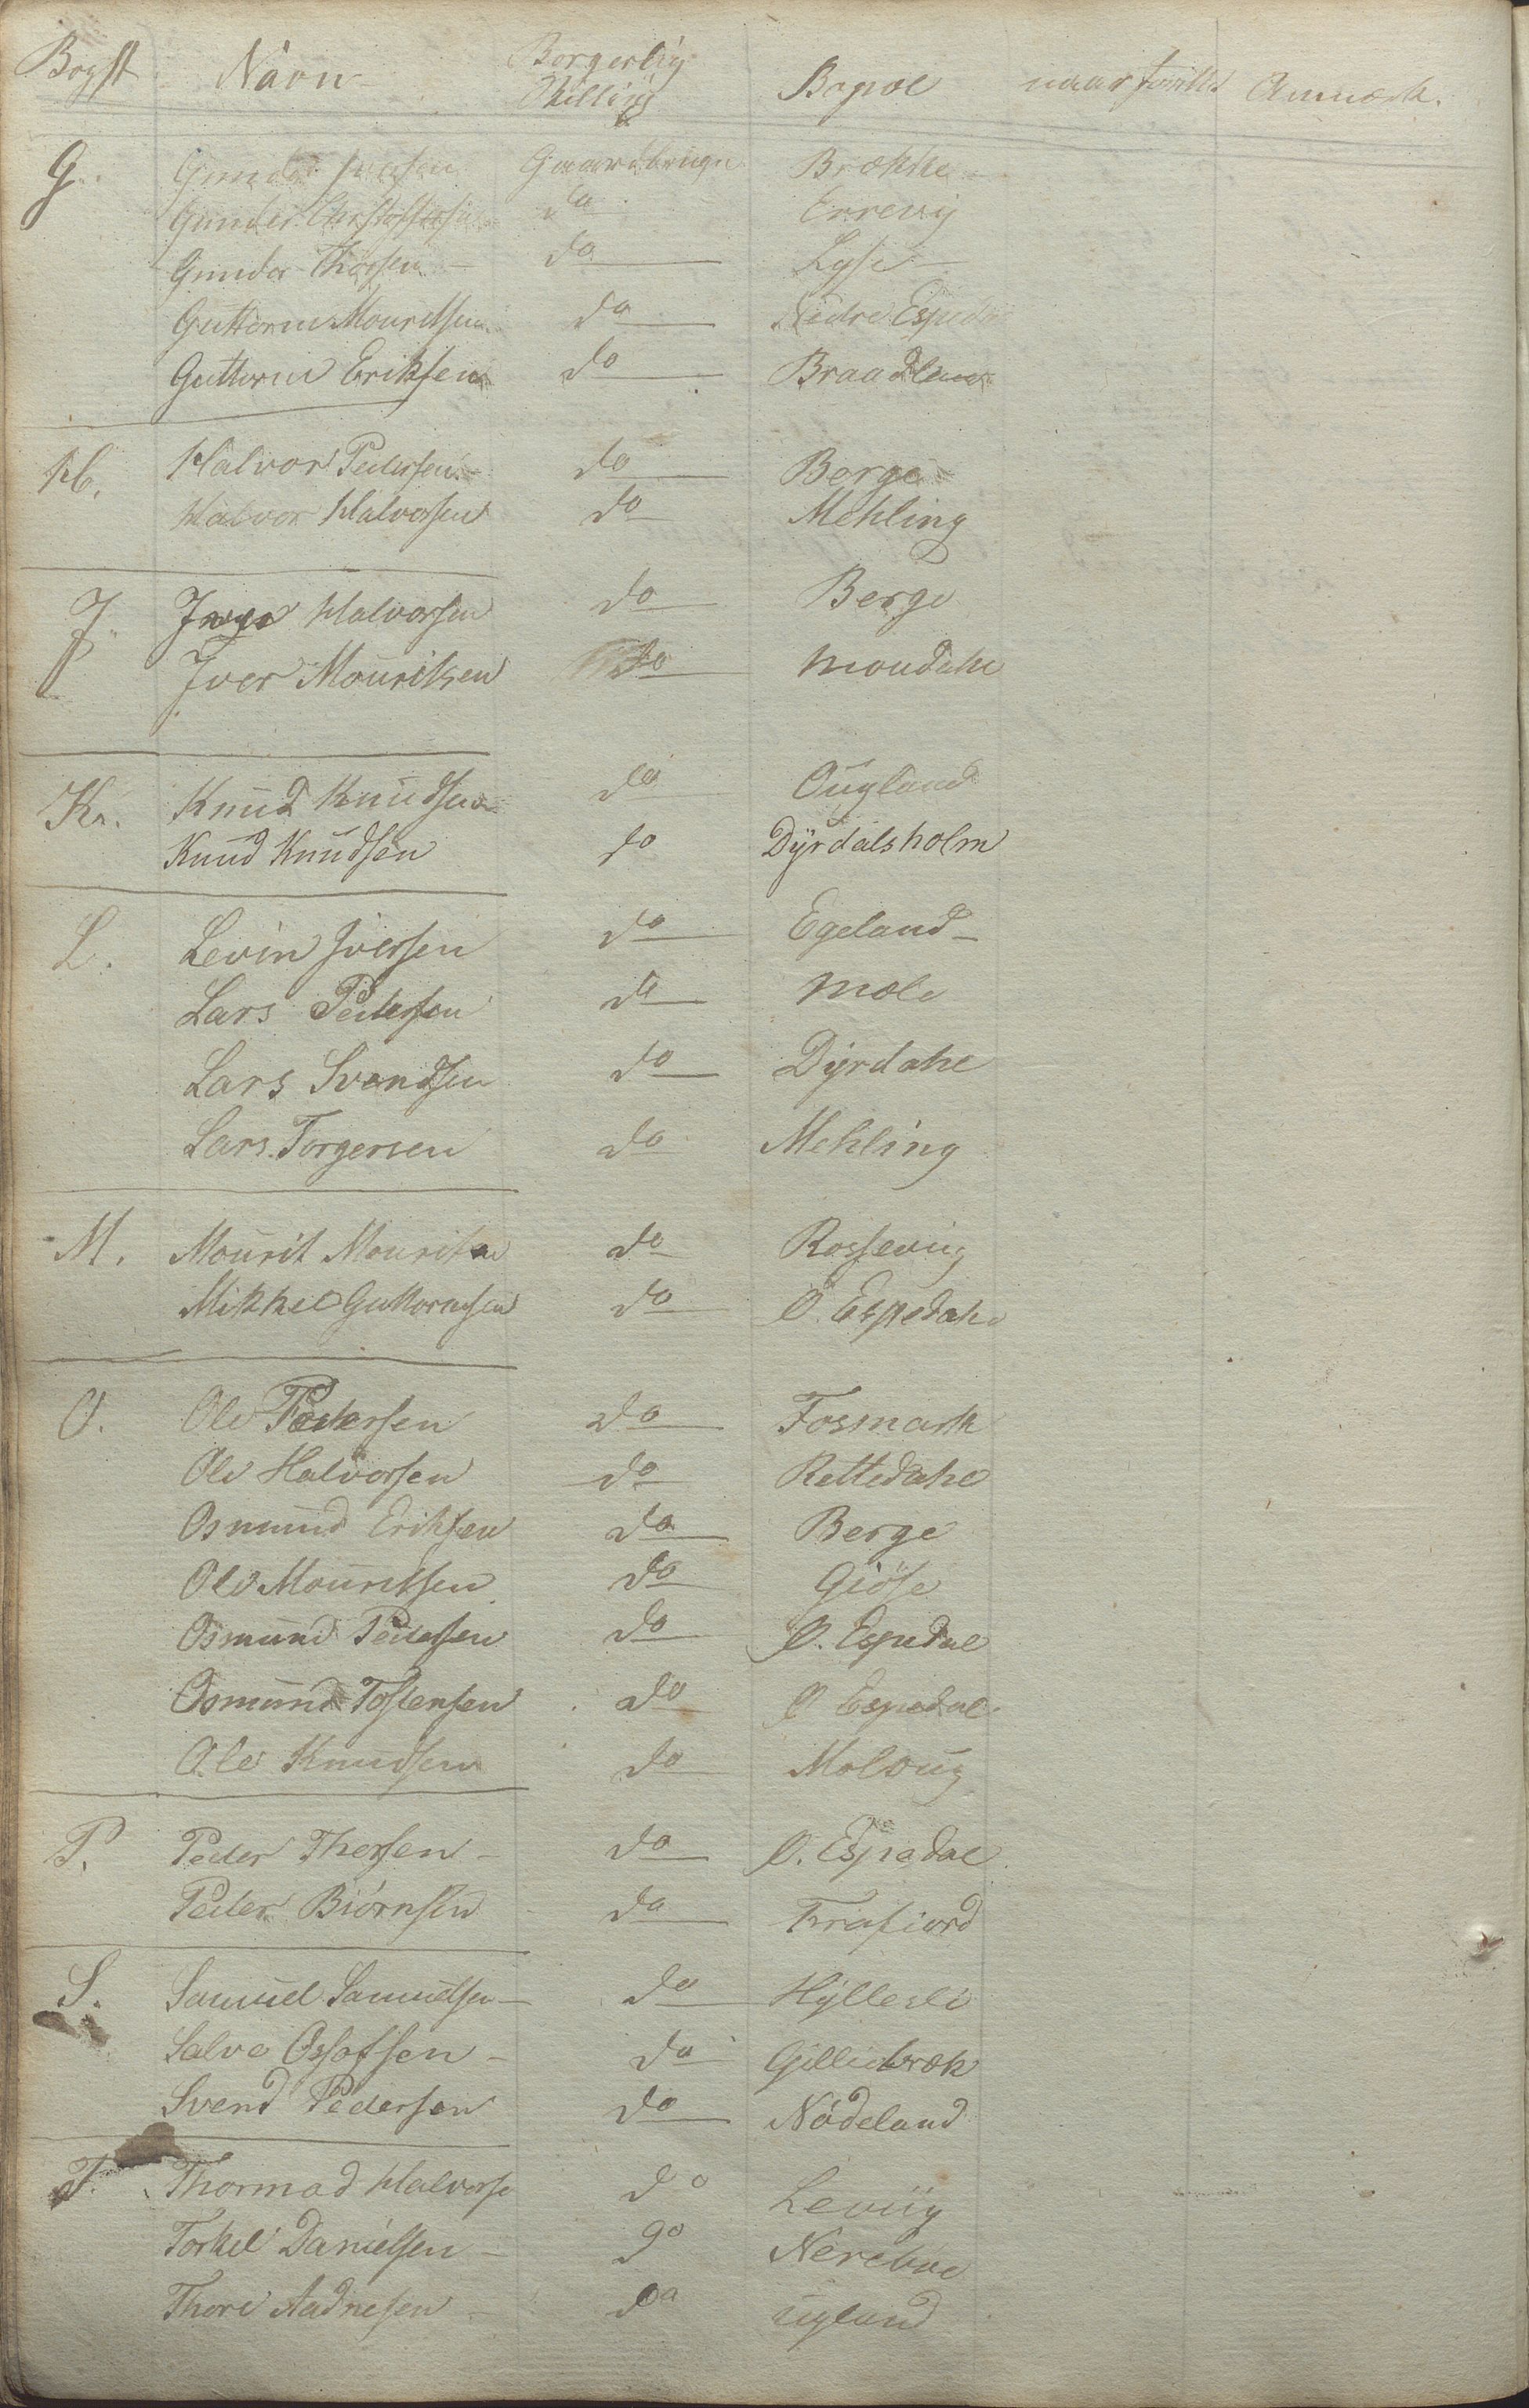 Bogst Navn Borgerlig Stilling Bopæl naar Anmærk.
G. Gunder Gaardbruger Brække
Gunder do Errevig
Gunder Thorsen do Lyse
Guttorm Mouritsen do Nedre Espedal
Guttorm Eriksen do Braadland
H. Halvor Pedersen do Berge
Halvor Halvorsen do Mehling
J. Halvorsen do Berge
Iver Mouritsen do Moudahl
K. Knud Knudsen do Ougland
Knud Knudsen do Dÿrdalsholm
L. Levin Iversen do Egeland
Lars Pedersen do Mæle
Lars Svendsen do Dÿrdahl
Lars Torgersen do Mehling
M. Mourit Mouritsen do Rossevig
Mikkel Guttormsen do Ø. Espedahl
O. Ole Pedersen do Fosmark
Ole Halvorsen do Rettedahl
Osmund Eriksen do Berge
Ole Mouritsen do Giöse
Osmund Pedersen do Ø. Espedal
Osmund Tostensen do Ø Espedal
Ole Knudsen do Molvig
P. Peder Thorsen do Ø. Espedal
Peder Biörnsen do Frafiord
S. Samuel Samuelsen do Hÿllesli
Salve Ossofsen do Gilliebræk
Svend Pedersen do Nödeland
T. Thormod Halvorse do Leviig
Torkel Danielsen do Nerebøe
Thore Aadnesen do Ugland